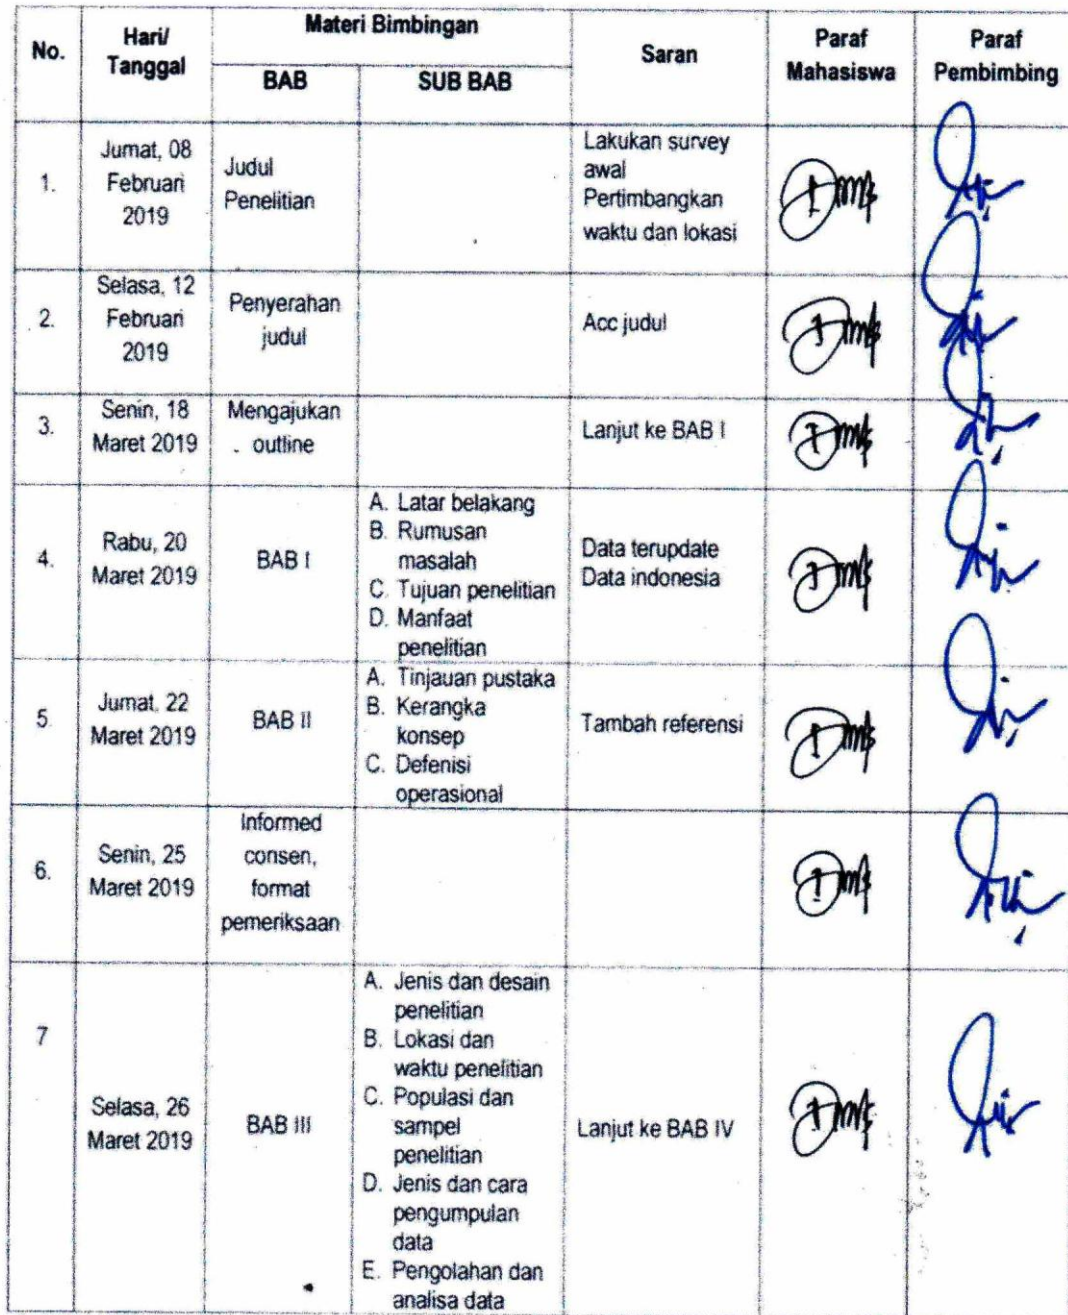 No.
Hari/
Tanggal
Materi Bimbingan
BAB
SUB BAB
Saran
Paraf
Mahasiswa
Paraf
Pembimbing
1.
Jumat, 08
Februari
2019
Judul
Penelitian
Lakukan survey
awal
Pertimbangkan
waktu dan lokasi
2.
Selasa, 12
Februari
2019
Penyerahan
judul
Acc judul
3.
Senin, 18
Maret 2019
Mengajukan
outline
Lanjut ke BAB I
4.
Rabu, 20
Maret 2019
BAB I
A. Latar belakang
B. Rumusan
masalah
C. Tujuan penelitian
D. Manfaat
penelitian
Data terupdate
Data indonesia
5.
Jumat, 22
Maret 2019
BAB II
A. Tinjauan pustaka
B. Kerangka
konsep
C. Defenisi
operasional
Tambah referensi
6.
Senin, 25
Maret 2019
Informed
consen,
format
pemeriksaan
7
Selasa, 26
Maret 2019
BAB III
A. Jenis dan desain
penelitian
B. Lokasi dan
waktu penelitian
C. Populasi dan
sampel
penelitian
D. Jenis dan cara
pengumpulan
data
E. Pengolahan dan
analisa data
Lanjut ke BAB IV